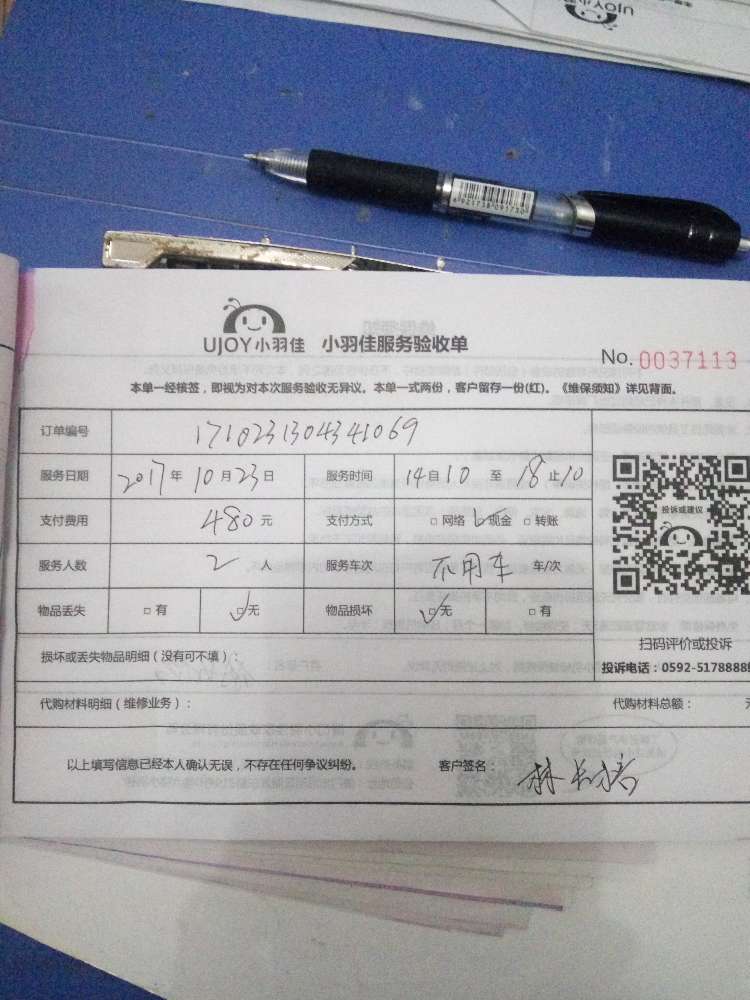 6921738091730
UJOY小羽佳 小羽佳服务验收单
No. 0037113
本单一经核签，即视为对本次服务验收无异议。本单一式两份，客户留存一份(红)。《维保须知》详见背面。
订单编号 1710231304341069
服务日期 2017年10月23日 服务时间 14自10至18止10
支付费用 480元 支付方式 □网络 ☑现金 □转账
投诉或建议
服务人数 2人 服务车次 不用车 车/次
物品丢失 □有 ☑无 物品损坏 ☑无 □有
扫码评价或投诉
损坏或丢失物品明细（没有可不填）：
投诉电话：0592-5178888
代购材料明细（维修业务）： 代购材料总额：
以上填写信息已经本人确认无误，不存在任何争议纠纷。 客户签名：